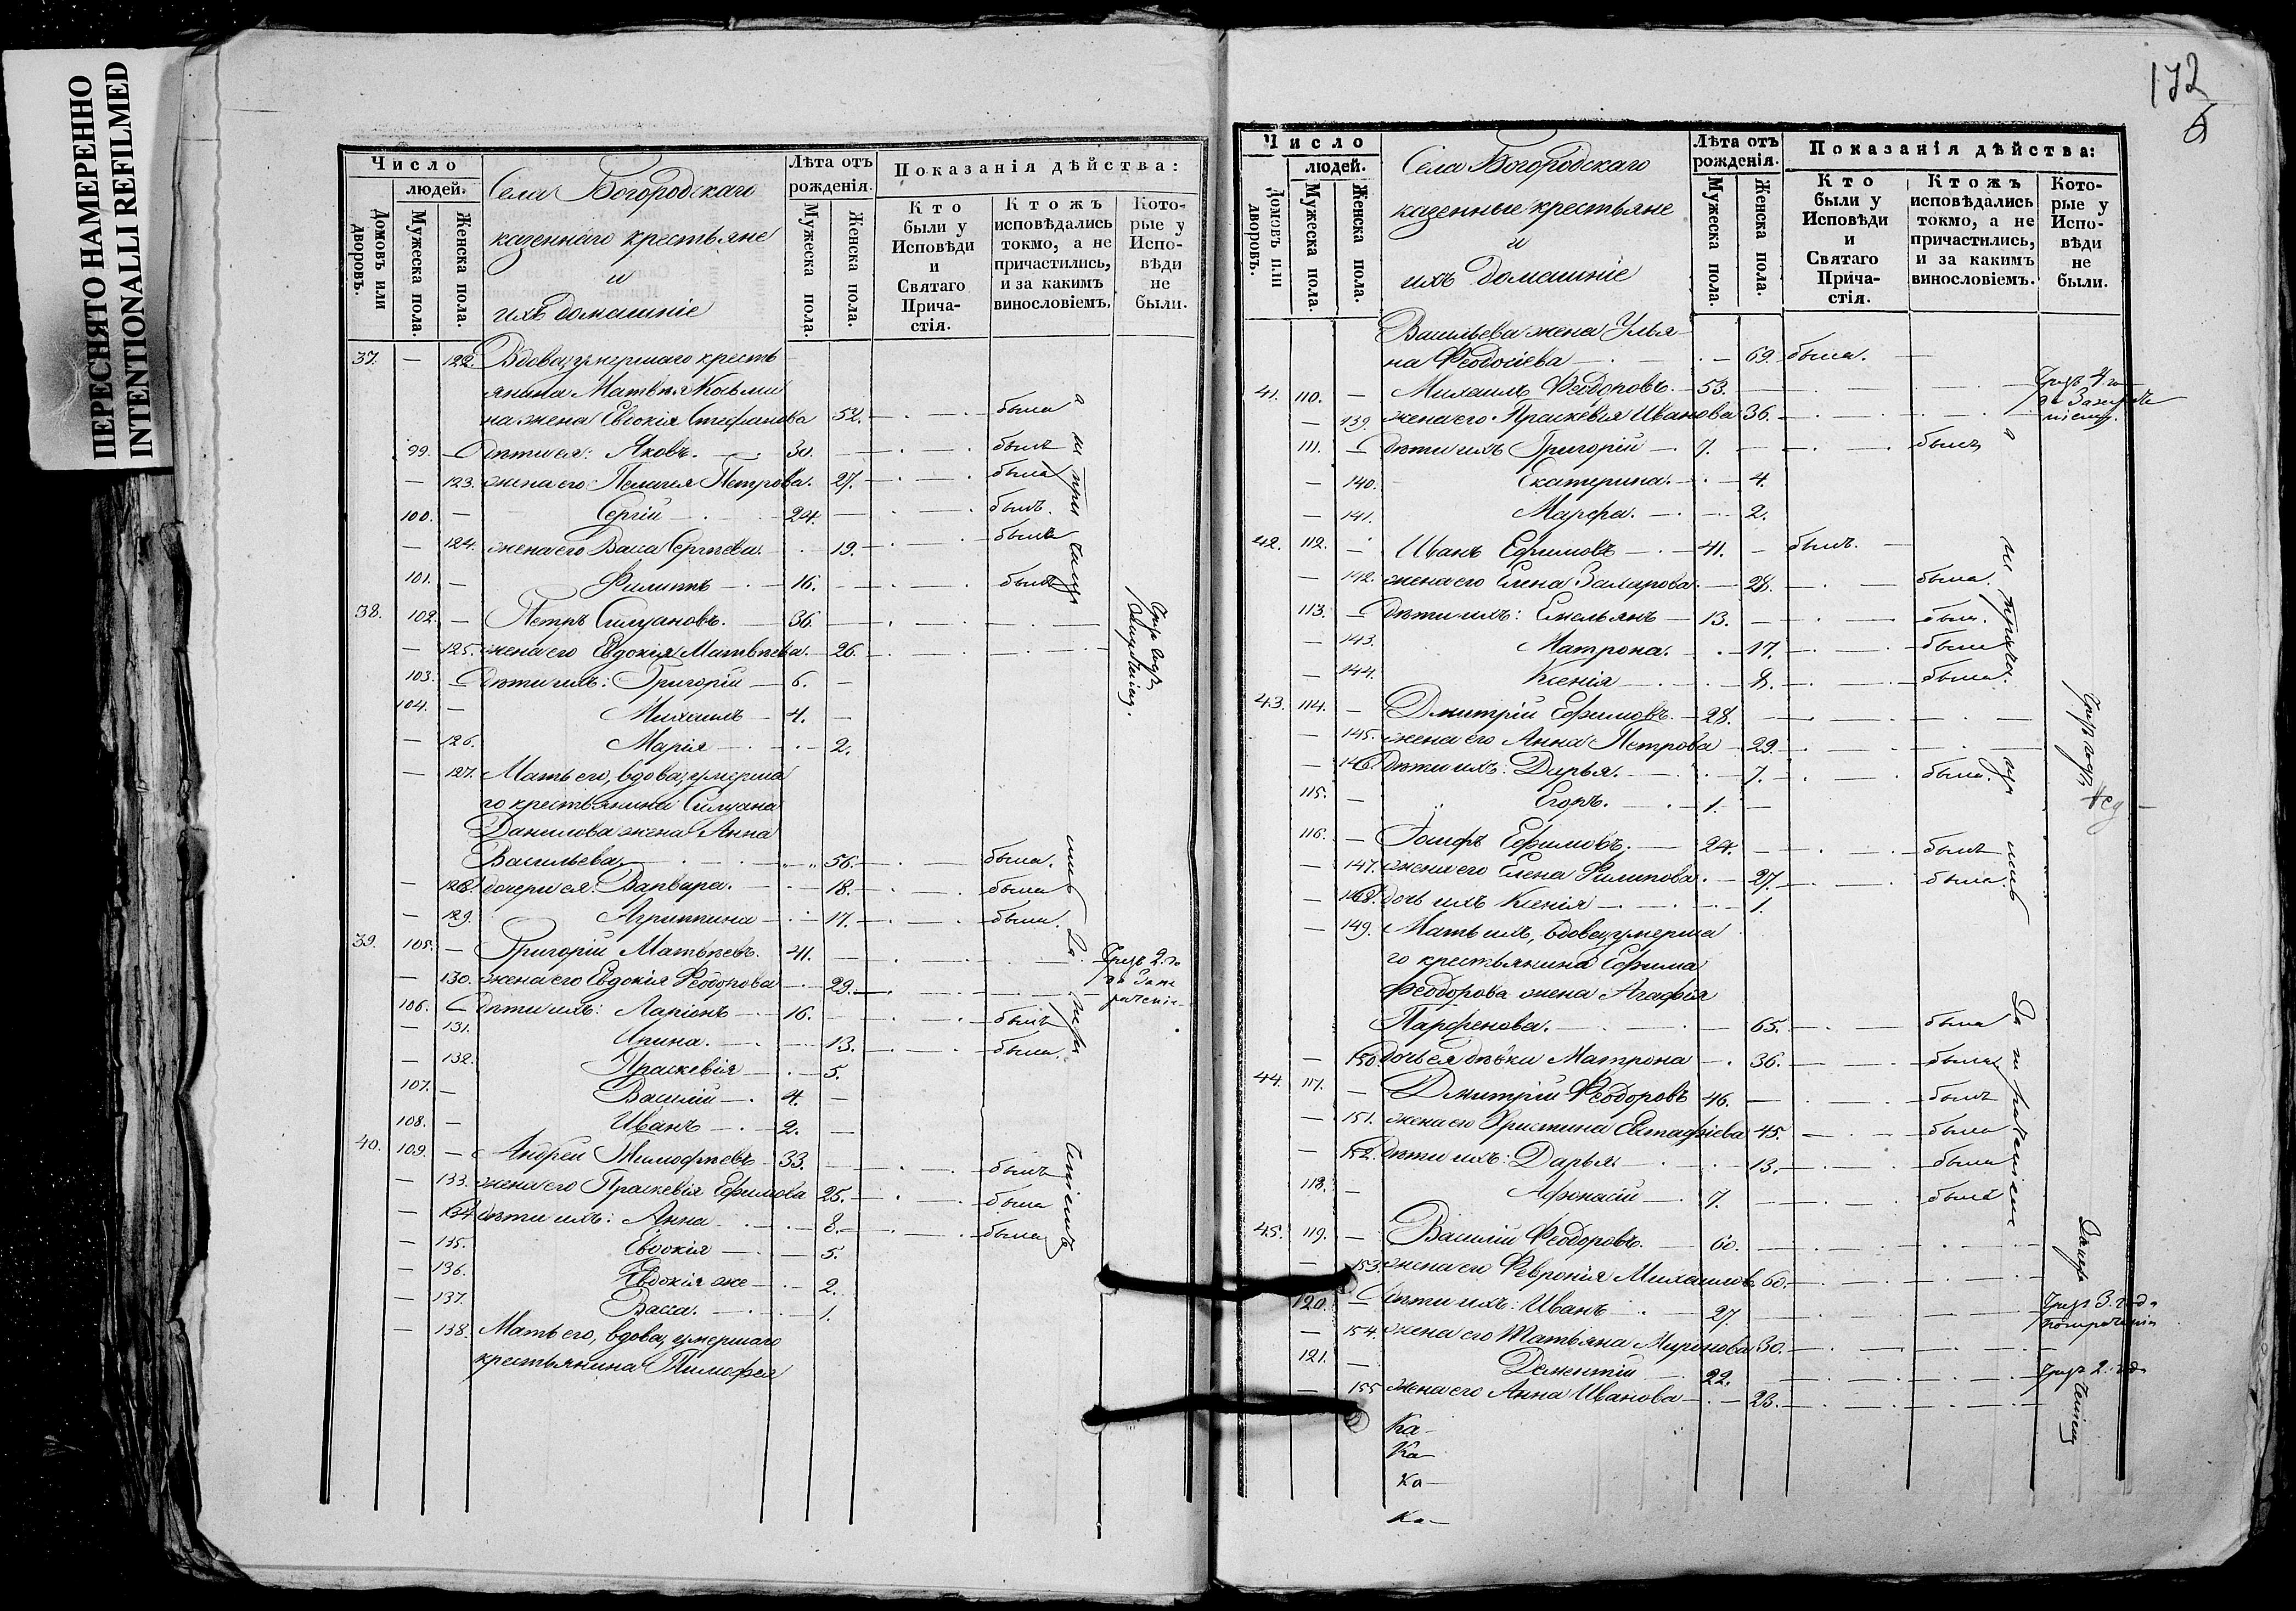 ПЕРЕСНЯТО НАМЕРЕННО
INTENTIONALLI REFILMED
Число
людей.
Домовъ или дворовъ.
Мужеска пола.
Женска пола.
Села Богородскаго
казеннаго крестьяне
и
ихъ домашніе
Лѣта отъ рожденія.
Мужеска пола.
Женска пола.
Показанія дѣйства:
Кто были у Исповѣди и Святаго Прича-стія.
Ктожъ исповѣдались токмо, а не причастились, и за какимъ винословіемъ.
Кото-рые у Испо-вѣди не были.
37. — 122. Вдова, умершаго кресть
янина Матвѣя Козьми
на жена Евдокія Стефанова 52. была
99. — Дѣти ея: Яковъ. 30. былъ
— 123. жена его Пелагея Петрова. 27. была
100. — Сергій 24. былъ.
— 124. жена его Васса Сергѣева. 19. была
101. — Филиппъ 16. былъ
38. 102. — Петръ Силуановъ. 36.
— 125. жена его Евдокія Матвѣева. 26.
103. — Дѣти ихъ: Григорій 6.
104. — Михаилъ 4.
— 126. Марія 2.
— 127. Мать его, вдова, умерша
го крестьянина Силуана
Данилова жена Анна
Васильева. 56. была.
— 128. дочери ея: Варвара. 18. была
— 129. Агриппина 17. была.
39. 105. — Григорій Матвѣевъ. 41.
— 130. жена его Евдокія Ѳеодорова 29.
106. — Дѣти ихъ: Ларіонъ 16. былъ
— 131. Ирина. 13. была.
— 132. Праскевія 5.
107. — Василій 4.
108. — Иванъ 2.
40. 109. — Андрей Тимофѣевъ 33. былъ
— 133. жена его Праскевія Ефимова 25. была
— 134. дѣти ихъ: Анна 8. была
— 135. Евдокія 5.
— 136. Евдокія же 2.
— 137. Васса. 1.
— 138. Мать его, вдова, умершаго
крестьянина Тимофея
172
Число
людей.
Домовъ или дворовъ.
Мужеска пола.
Женска пола.
Села Богородскаго
казенные крестьяне
и
ихъ домашніе
Лѣта отъ рожденія.
Мужеска пола.
Женска пола.
Показанія дѣйства:
Кто были у Исповѣди и Святаго Прича-стія.
Ктожъ исповѣдались токмо, а не причастились, и за какимъ винословіемъ.
Кото-рые у Испо-вѣди не были.
Васильева жена Улья
на Ѳеодосіева 69. была.
41. 110. — Михаилъ Ѳеодоровъ. 53.
— 139. жена его Праскевія Иванова 36.
111. — Дѣти ихъ Григорій 7. былъ
— 140. Екатерина. 4.
— 141. Марфа. 2.
42. 112. — Иванъ Ефимовъ 41. былъ.
— 142. жена его Елена Захарова 28. была.
113. — Дѣти ихъ: Емельянъ 13.
— 143. Матрона. 17. была
— 144. Ксенія 8. была.
43. 114. — Дмитрій Ефимовъ. 28.
— 145. жена его Анна Петрова 29.
— 146. Дѣти ихъ: Дарья. 7. была.
115. — Егоръ. 1.
116. — Іосифъ Ефимовъ. 24. былъ
— 147. жена его Елена Филипова. 27. была.
— 148. дочь ихъ Ксенія 1.
— 149. Мать ихъ, вдова, умерша
го крестьянина Ефима
Ѳеодорова жена Агафія
Парфенова. 65. была
— 150. дочь ея дѣвка Матрона 36. была
44. 117. — Дмитрій Ѳеодоровъ 46. былъ
— 151. жена его Христина Евстафіева 45. была
— 152. дѣти ихъ: Дарья 13. была
118. — Афонасій 7. былъ
45. 119. — Василій Ѳеодоровъ. 60.
— 153. жена его Ѳевронія Михаилова 60.
120. — Дѣти ихъ: Иванъ 27.
— 154. жена его Татьяна Миронова 30.
121. — Дементій 22.
— 155. жена его Анна Иванова 23.
Ка—
Ка—
Ка—
Ка—